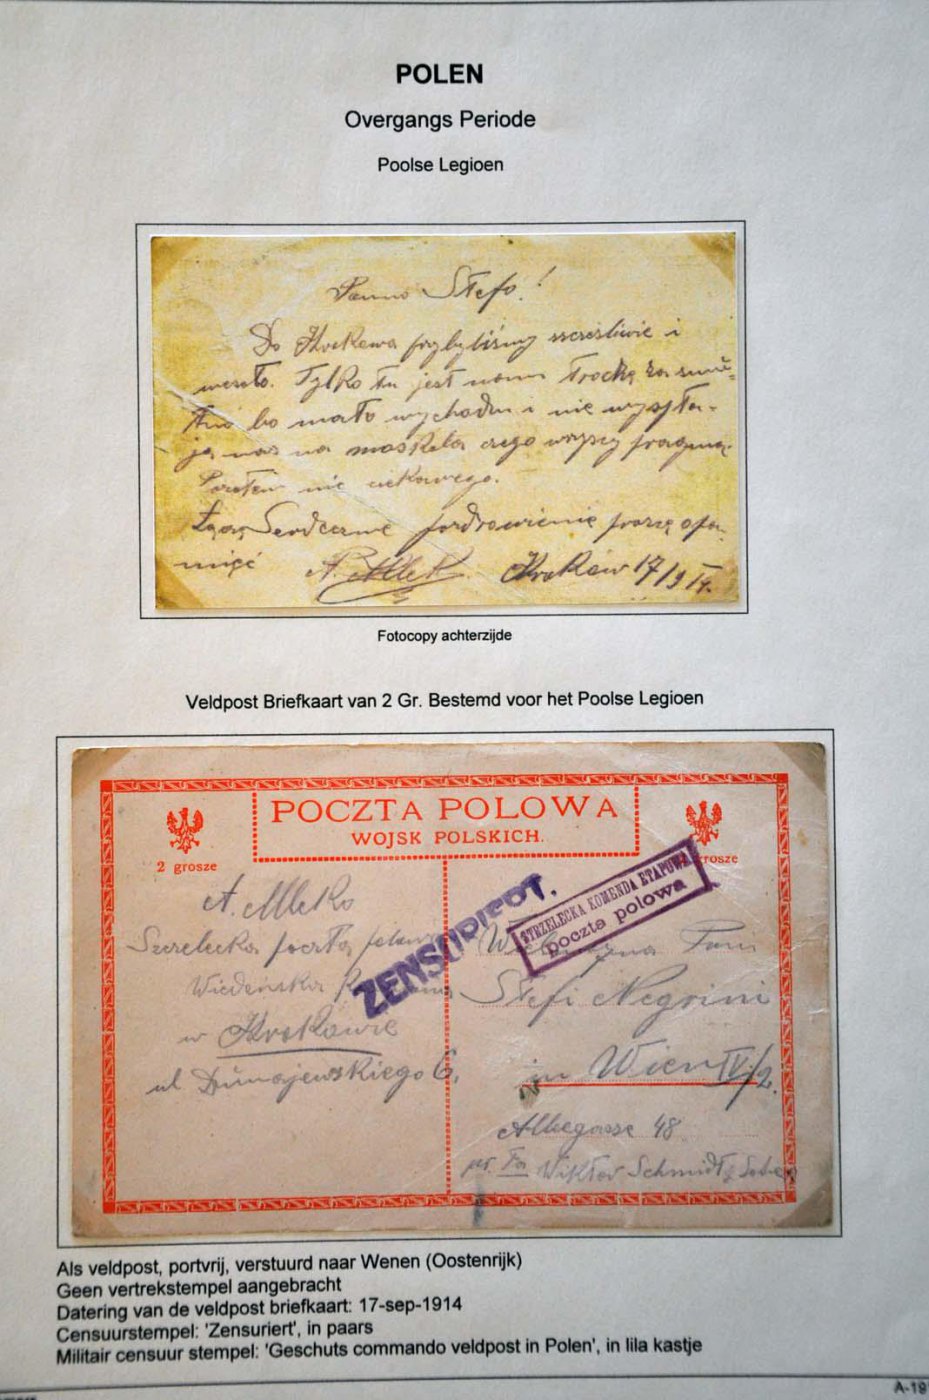 POLEN
Overgangs Periode
Poolse Legioen
Panno Stefo!
Do Krakowa przybyliśmy szczęśliwie i
wesoło. Tylko tu jest nam trochę za smu-
tno bo mało wychodzi i nie wysyła-
ją nas na moskala czego wszyscy pragną.
Pozatem nic ciekawego.
Łączę Serdeczne pozdrowienie proszę o pa-
mięć A. Mlek. Kraków 17/9 14.
Fotocopy achterzijde
Veldpost Briefkaart van 2 Gr. Bestemd voor het Poolse Legioen
POCZTA POLOWA
WOJSK POLSKICH.
2 grosze
grosze
STRZELECKA KOMENDA ETAPOWA
poczta polowa
ZENSURIERT.
A. Mleko
Szczelecka poczta polowa
Wiedeńska
w Krakowie
ul Dunajewskiego 6.
Wielmożna Pani
Stefi Negrini
in Wien IV/2.
48
Wiktor Schmidt &
Als veldpost, portvrij, verstuurd naar Wenen (Oostenrijk)
Geen vertrekstempel aangebracht
Datering van de veldpost briefkaart: 17-sep-1914
Censuurstempel: 'Zensuriert', in paars
Militair censuur stempel: 'Geschuts commando veldpost in Polen', in lila kastje
A-19